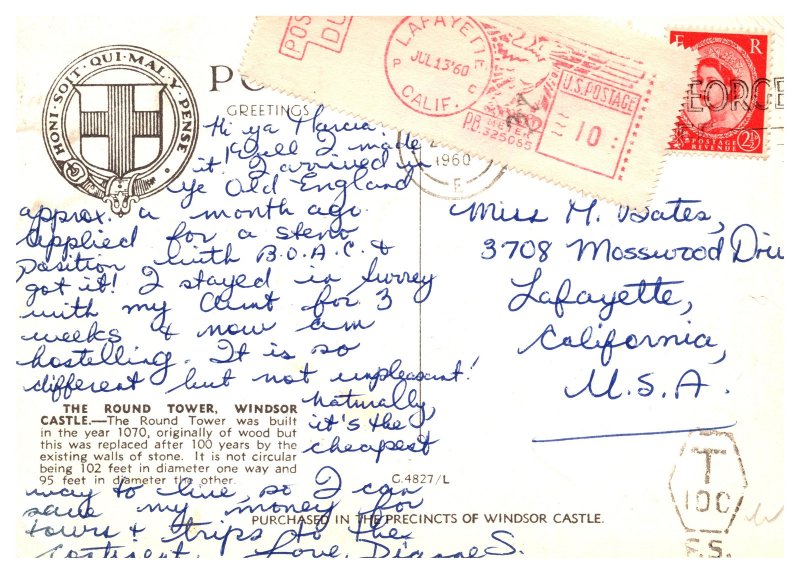 HONI · SOIT · QUI · MAL · Y · PENSE ·
GREETINGS
Hi ya Marcia!
Well I made
it! I arrived in
ye Old England
approx. a month ago.
Applied for a steno
position with B.O.A.C. &
got it! I stayed in Surrey
with my Aunt for 3
weeks & now am
hostelling. It is so
different but not unpleasant!
Naturally,
it's the
cheapest
way to live, so I can
save my money for
tours & trips to the
Continent. Love, Dianne S.
THE ROUND TOWER, WINDSOR
CASTLE.—The Round Tower was built
in the year 1070, originally of wood but
this was replaced after 100 years by the
existing walls of stone. It is not circular
being 102 feet in diameter one way and
95 feet in diameter the other.
C.4827/L
PURCHASED IN THE PRECINCTS OF WINDSOR CASTLE.
POS
DU
LAFAYETTE
P JUL 13 '60 C
CALIF.
U.S. POSTAGE
10
PB METER
325065
1960
E
E R
POSTAGE
REVENUE
2½D
EORGE
Miss M. Bates,
3708 Mosswood Driv
Lafayette,
California,
U.S.A.
T
10C
F.S.